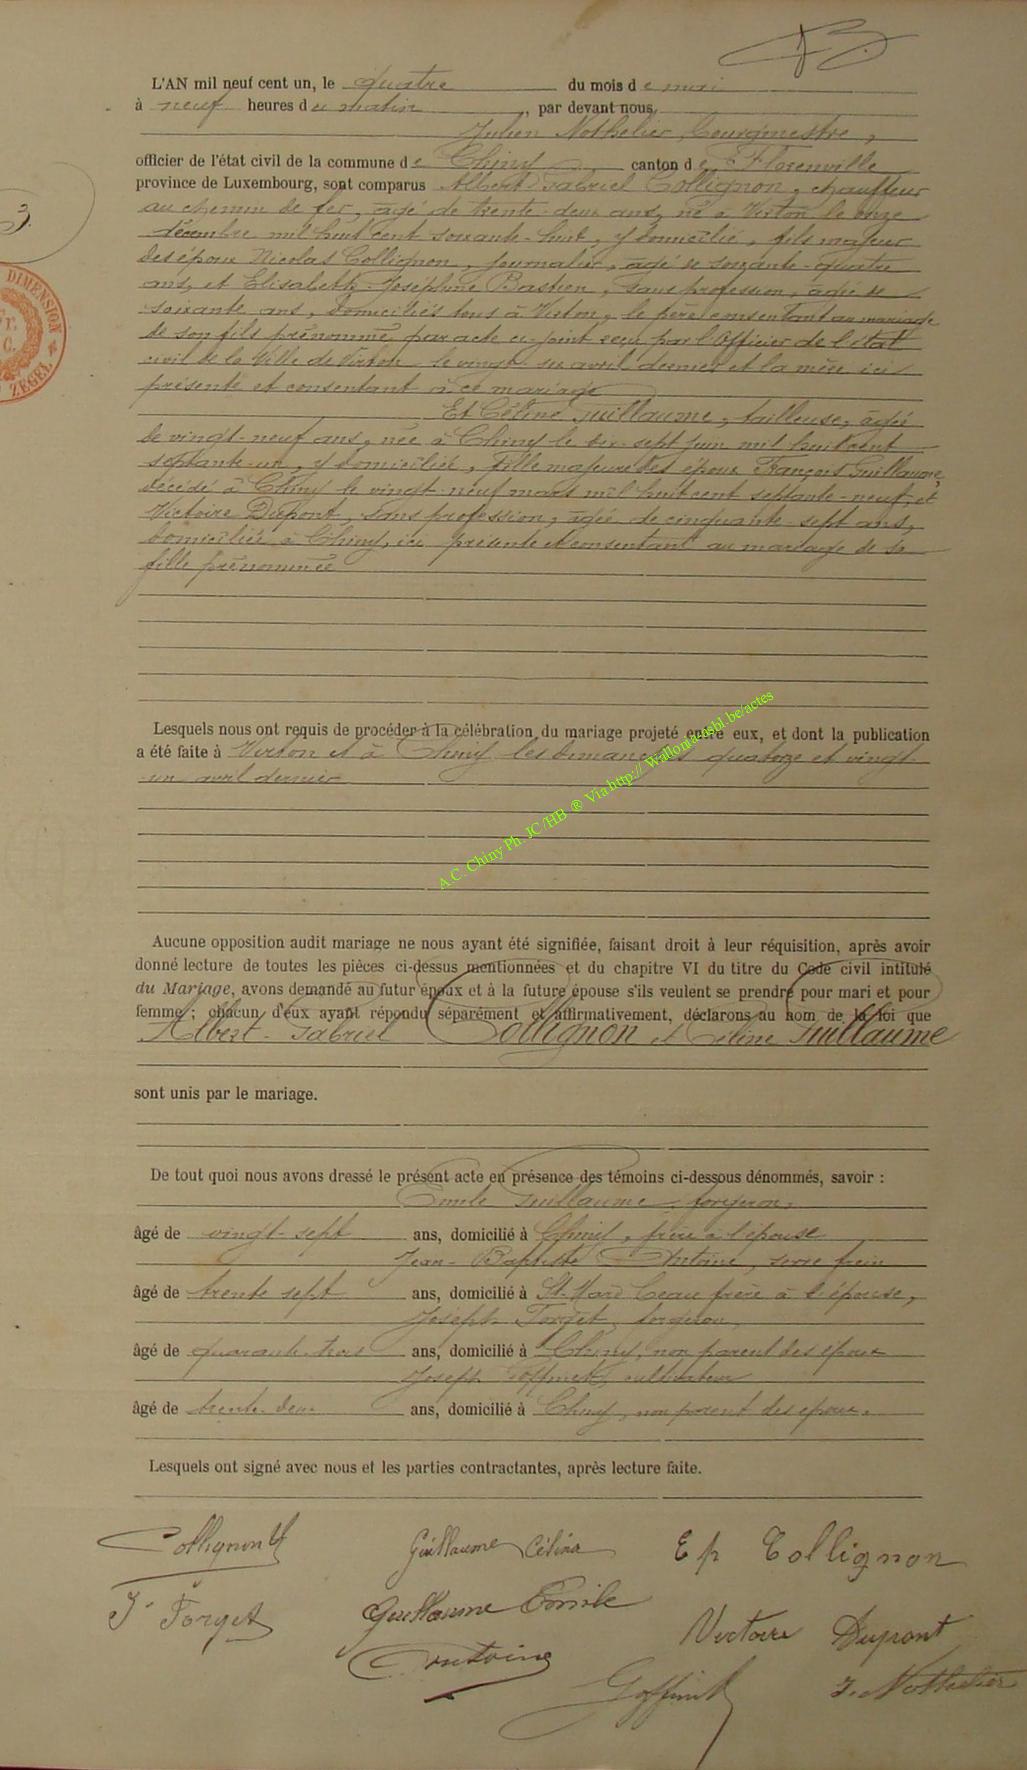 L'AN mil neuf cent un, le quatre du mois de mai
à neuf heures du matin, par devant nous,
Julien Nothelier, Bourgmestre,
officier de l'état civil de la commune de Chiny canton de Florenville
province de Luxembourg, sont comparus Albert-Gabriel Collignon, chauffeur
3.
au chemin de fer, âgé de trente-deux ans, né à Virton le onze
décembre mil huit cent soixante-huit, y domicilié, fils majeur
des époux Nicolas Collignon, journalier, âgé de soixante-quatre
DIMENSION
ans, et Elisabeth-Joséphine Bastien, sans profession, âgée de
soixante ans, domiciliés tous à Virton, le père consentant au mariage
de son fils prénommé, par acte ci-joint reçu par l'Officier de l'état
civil de la Ville de Virton le vingt-six avril dernier et la mère ici
ZEGEL
présente et consentant à ce mariage
Et Céline Guillaume, tailleuse, âgée
de vingt-neuf ans, née à Chiny le dix-sept juin mil huit cent
septante-un, y domiciliée, fille majeure des époux François Guillaume,
décédé à Chiny le vingt-neuf mars mil huit cent septante-neuf, et
Victoire Dupont, sans profession, âgée de cinquante-sept ans,
domiciliée à Chiny, ici présente et consentant au mariage de sa
fille prénommée
Lesquels nous ont requis de procéder à la célébration du mariage projeté entre eux, et dont la publication
a été faite à Virton et à Chiny les dimanches quatorze et vingt-
un avril dernier
A.C. Chiny Ph. JC/HB ® Via http:// Wallonia-asbl.be/actes
Aucune opposition audit mariage ne nous ayant été signifiée, faisant droit à leur réquisition, après avoir
donné lecture de toutes les pièces ci-dessus mentionnées et du chapitre VI du titre du Code civil intitulé
du Mariage, avons demandé au futur époux et à la future épouse s'ils veulent se prendre pour mari et pour
femme ; chacun d'eux ayant répondu séparément et affirmativement, déclarons au nom de la loi que
Albert-Gabriel Collignon et Céline Guillaume
sont unis par le mariage.
De tout quoi nous avons dressé le présent acte en présence des témoins ci-dessous dénommés, savoir :
Emile Guillaume, forgeron,
âgé de vingt-sept ans, domicilié à Chiny, frère à l'épouse
Jean-Baptiste Antoine, serre frein
âgé de trente sept ans, domicilié à St-Mard beau frère à l'épouse,
Joseph Forget, forgeron,
âgé de quarante-trois ans, domicilié à Chiny, non parent des époux
Joseph Goffinet, cultivateur
âgé de trente-deux ans, domicilié à Chiny, non parent des époux.
Lesquels ont signé avec nous et les parties contractantes, après lecture faite.
Collignon Guillaume Célina E p Collignon
J. Forget Guillaume Emile
Victoire Dupont
Antoine
Goffinet J. Nothelier